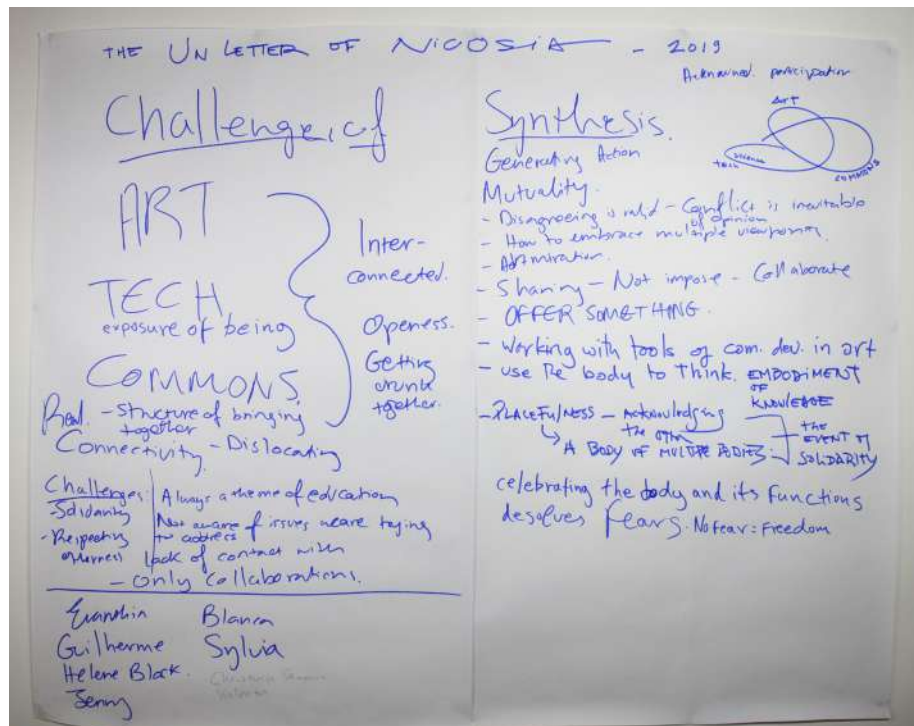 THE UN LETTER OF NICOSIA - 2019
Challenge, of
ART
TECH
exposure of being
COMMONS.
Inter-
connected.
Openess.
Getting
drunk
together.
Real. - Structure of bringing
together
Connectivity - Dislocating
Challenges:
Solidarity
- Respecting
otherness
Always a theme of education
Not aware of issues we are trying
to address
lack of contact with
- only collaborations.
Guilherme
Helene Black.
Jenny
Blanca
Sylvia
participation
Synthesis.
ART
science
tech
COMMONS
Generating Action
Mutuality.
- Disagreeing is valid - Conflict is inevitable
of opinion
- How to embrace multiple viewpoints.
- Admiration.
- Sharing - Not impose - Collaborate
- OFFER SOMETHING.
- Working with tools of com. dev. in art
- use the body to Think. EMBODIMENT
OF
KNOWLEDGE
- PLACEFULNESS - ACKNOWLEDGING
THE OTHER
A BODY OF MULTIPLE BODIES
THE
EVENT OF
SOLIDARITY
celebrating the body and its functions
desolves fears. No fear = Freedom